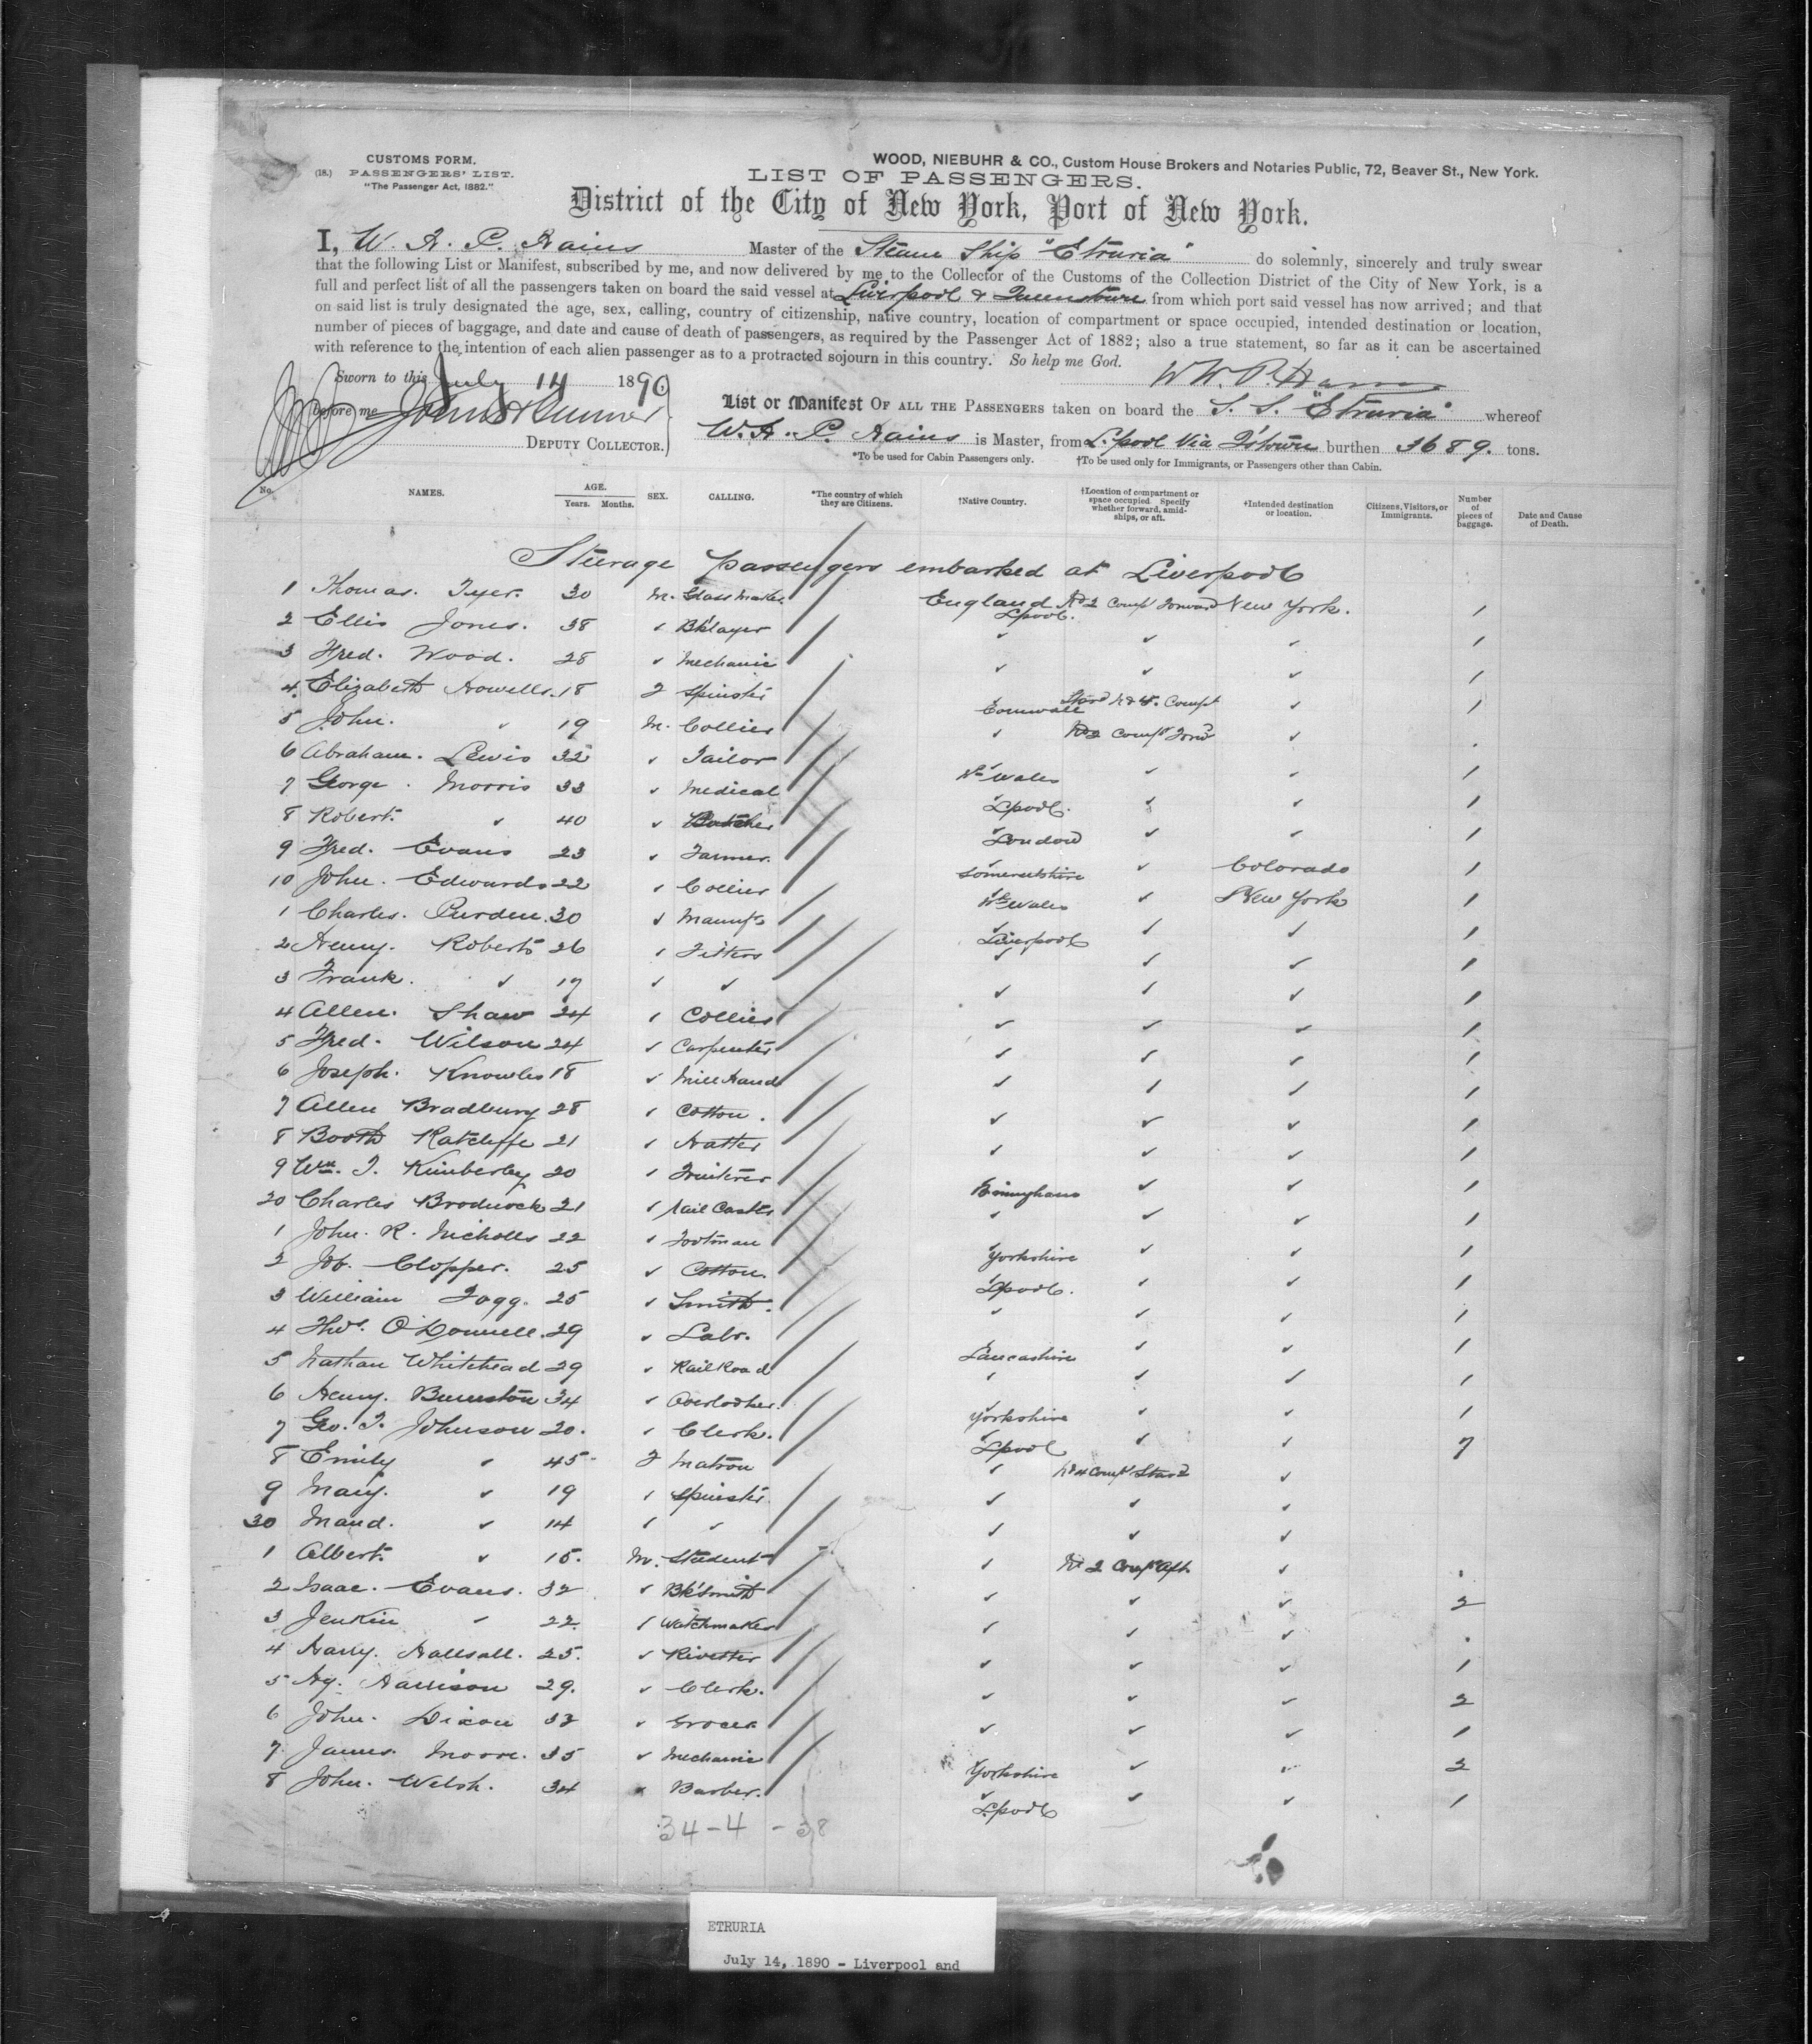 CUSTOMS FORM.
(18.) PASSENGERS' LIST.
"The Passenger Act, 1882."
WOOD, NIEBUHR & CO., Custom House Brokers and Notaries Public, 72, Beaver St., New York.
LIST OF PASSENGERS.
District of the City of New York, Port of New York.
I, W. H. P. Hains Master of the Steam Ship "Etruria" do solemnly, sincerely and truly swear
that the following List or Manifest, subscribed by me, and now delivered by me to the Collector of the Customs of the Collection District of the City of New York, is a
full and perfect list of all the passengers taken on board the said vessel at Liverpool & Queenstown from which port said vessel has now arrived; and that
on said list is truly designated the age, sex, calling, country of citizenship, native country, location of compartment or space occupied, intended destination or location,
number of pieces of baggage, and date and cause of death of passengers, as required by the Passenger Act of 1882; also a true statement, so far as it can be ascertained
with reference to the intention of each alien passenger as to a protracted sojourn in this country. So help me God.
Sworn to this July 14 1890
before me
DEPUTY COLLECTOR.
List or Manifest OF ALL THE PASSENGERS taken on board the S. S. "Etruria" whereof
W. H. P. Hains is Master, from L.pool Via Q'town burthen 3689. tons.
*To be used for Cabin Passengers only. †To be used only for Immigrants, or Passengers other than Cabin.
No. NAMES. AGE. Years. Months. SEX. CALLING. *The country of which they are Citizens. †Native Country. †Location of compartment or space occupied. Specify whether forward, amidships, or aft. †Intended destination or location. Citizens, Visitors, or Immigrants. Number of pieces of baggage. Date and Cause of Death.
Steerage passengers embarked at Liverpool
1 Thomas. Tyer. 30 M. Glass Maker England Lpool. No 2 Compt Forward New York. 1
2 Ellis Jones. 38 ✓ Bk'layer ✓ ✓ ✓ 1
3 Fred. Wood. 28 ✓ Mechanic ✓ ✓ ✓ 1
4 Elizabeth Howells. 18 F Spinster Cornwall ✓ 1
5 John. ✓ 19 M. Collier ✓ No 2 Compt Forwd ✓
6 Abraham. Lewis 32 ✓ Tailor No Wales ✓ ✓ 1
7 George. Morris 33 ✓ Medical Lpool. ✓ ✓ 1
8 Robert. ✓ 40 ✓ Butcher London ✓ ✓ 1
9 Fred. Evans 23 ✓ Farmer. Somersetshire ✓ Colorado 1
10 John. Edwards 22 ✓ Collier Wales ✓ New York 1
1 Charles. Purden. 30 ✓ Manufr Liverpool ✓ ✓ 1
2 Henry. Roberts 26 ✓ Fitters ✓ ✓ ✓ 1
3 Frank. ✓ 19 ✓ ✓ ✓ ✓ ✓ 1
4 Allen. Shaw 24 ✓ Collier ✓ ✓ ✓ 1
5 Fred. Wilson 24 ✓ Carpenter ✓ ✓ ✓ 1
6 Joseph. Knowles 18 ✓ Mill Hand ✓ ✓ ✓ 1
7 Allen Bradbury 28 ✓ Cotton. ✓ ✓ ✓ 1
8 Booth Ratcliffe 21 ✓ Hatter ✓ ✓ ✓ 1
9 Wm. T. Kimberley 20 ✓ Fruiterer Birmingham ✓ ✓ 1
20 Charles Brodwock 21 ✓ Nail Caster ✓ ✓ ✓ 1
1 John. R. Nicholls 22 ✓ Footman Yorkshire ✓ ✓ 1
2 Job. Clopper. 25 ✓ Cotton. Lpool. ✓ ✓ 1
3 William Fogg. 25 ✓ Smith. ✓ ✓ ✓ 1
4 Thos. O'Donnell. 29 ✓ Labr. Lancashire ✓ ✓ 1
5 Nathan Whitehead 29 ✓ RailRoad ✓ ✓ ✓ 1
6 Henry. 34 ✓ Overlooker. Yorkshire ✓ ✓ 1
7 Geo. T. Johnson 20. ✓ Clerk. Lpool ✓ ✓ 7
8 Emily ✓ 45 F Matron ✓ No 4 Compt Starbd ✓
9 Mary. ✓ 19 ✓ Spinster. ✓ ✓ ✓
30 Maud. ✓ 14 ✓ ✓ ✓ ✓ ✓
1 Albert. ✓ 15. M. Student ✓ No 2 Compt Aft. ✓
2 Isaac. Evans. 32 ✓ Bk'Smith ✓ ✓ ✓ 2
3 Jenkin ✓ 22. ✓ Watchmaker ✓ ✓ ✓
4 Harry. Hallsall. 25. ✓ Rivetter ✓ ✓ ✓ 1
5 Hy. Harrison 29. ✓ Clerk. ✓ ✓ ✓ 2
6 John. Dixon 33 ✓ Grocer ✓ ✓ ✓ 1
7 James. Moore. 35 ✓ Mechanic Yorkshire ✓ ✓ 2
8 John. Welsh. 34 ✓ Barber. Lpool ✓ ✓ 1
34-4-38
ETRURIA
July 14, 1890 - Liverpool and